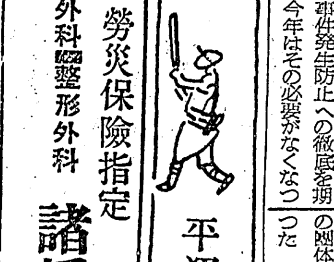 事件発生防止への徹底を期
今年はその必要がなくなつ
の幽体
つた
平
勞災保險指定
外科整形外科
諸